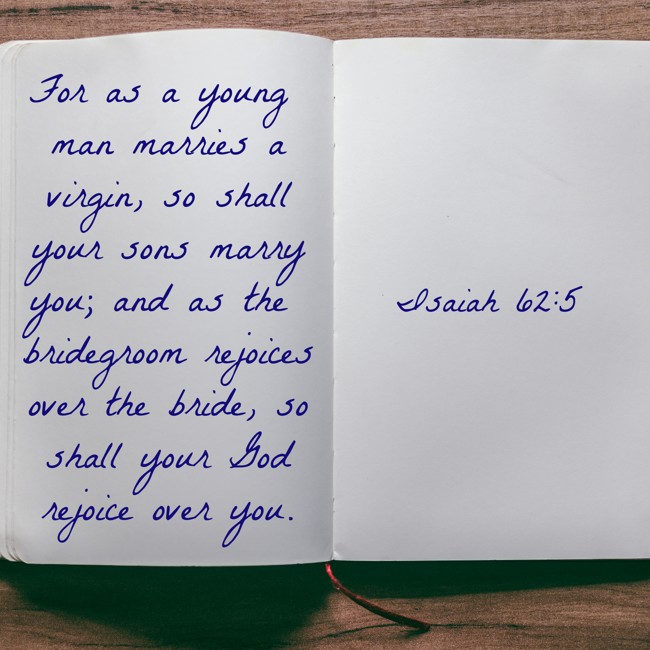 For as a young
man marries a
virgin, so shall
your sons marry
you; and as the
bridegroom rejoices
over the bride, so
shall your God
rejoice over you.
Isaiah 62:5